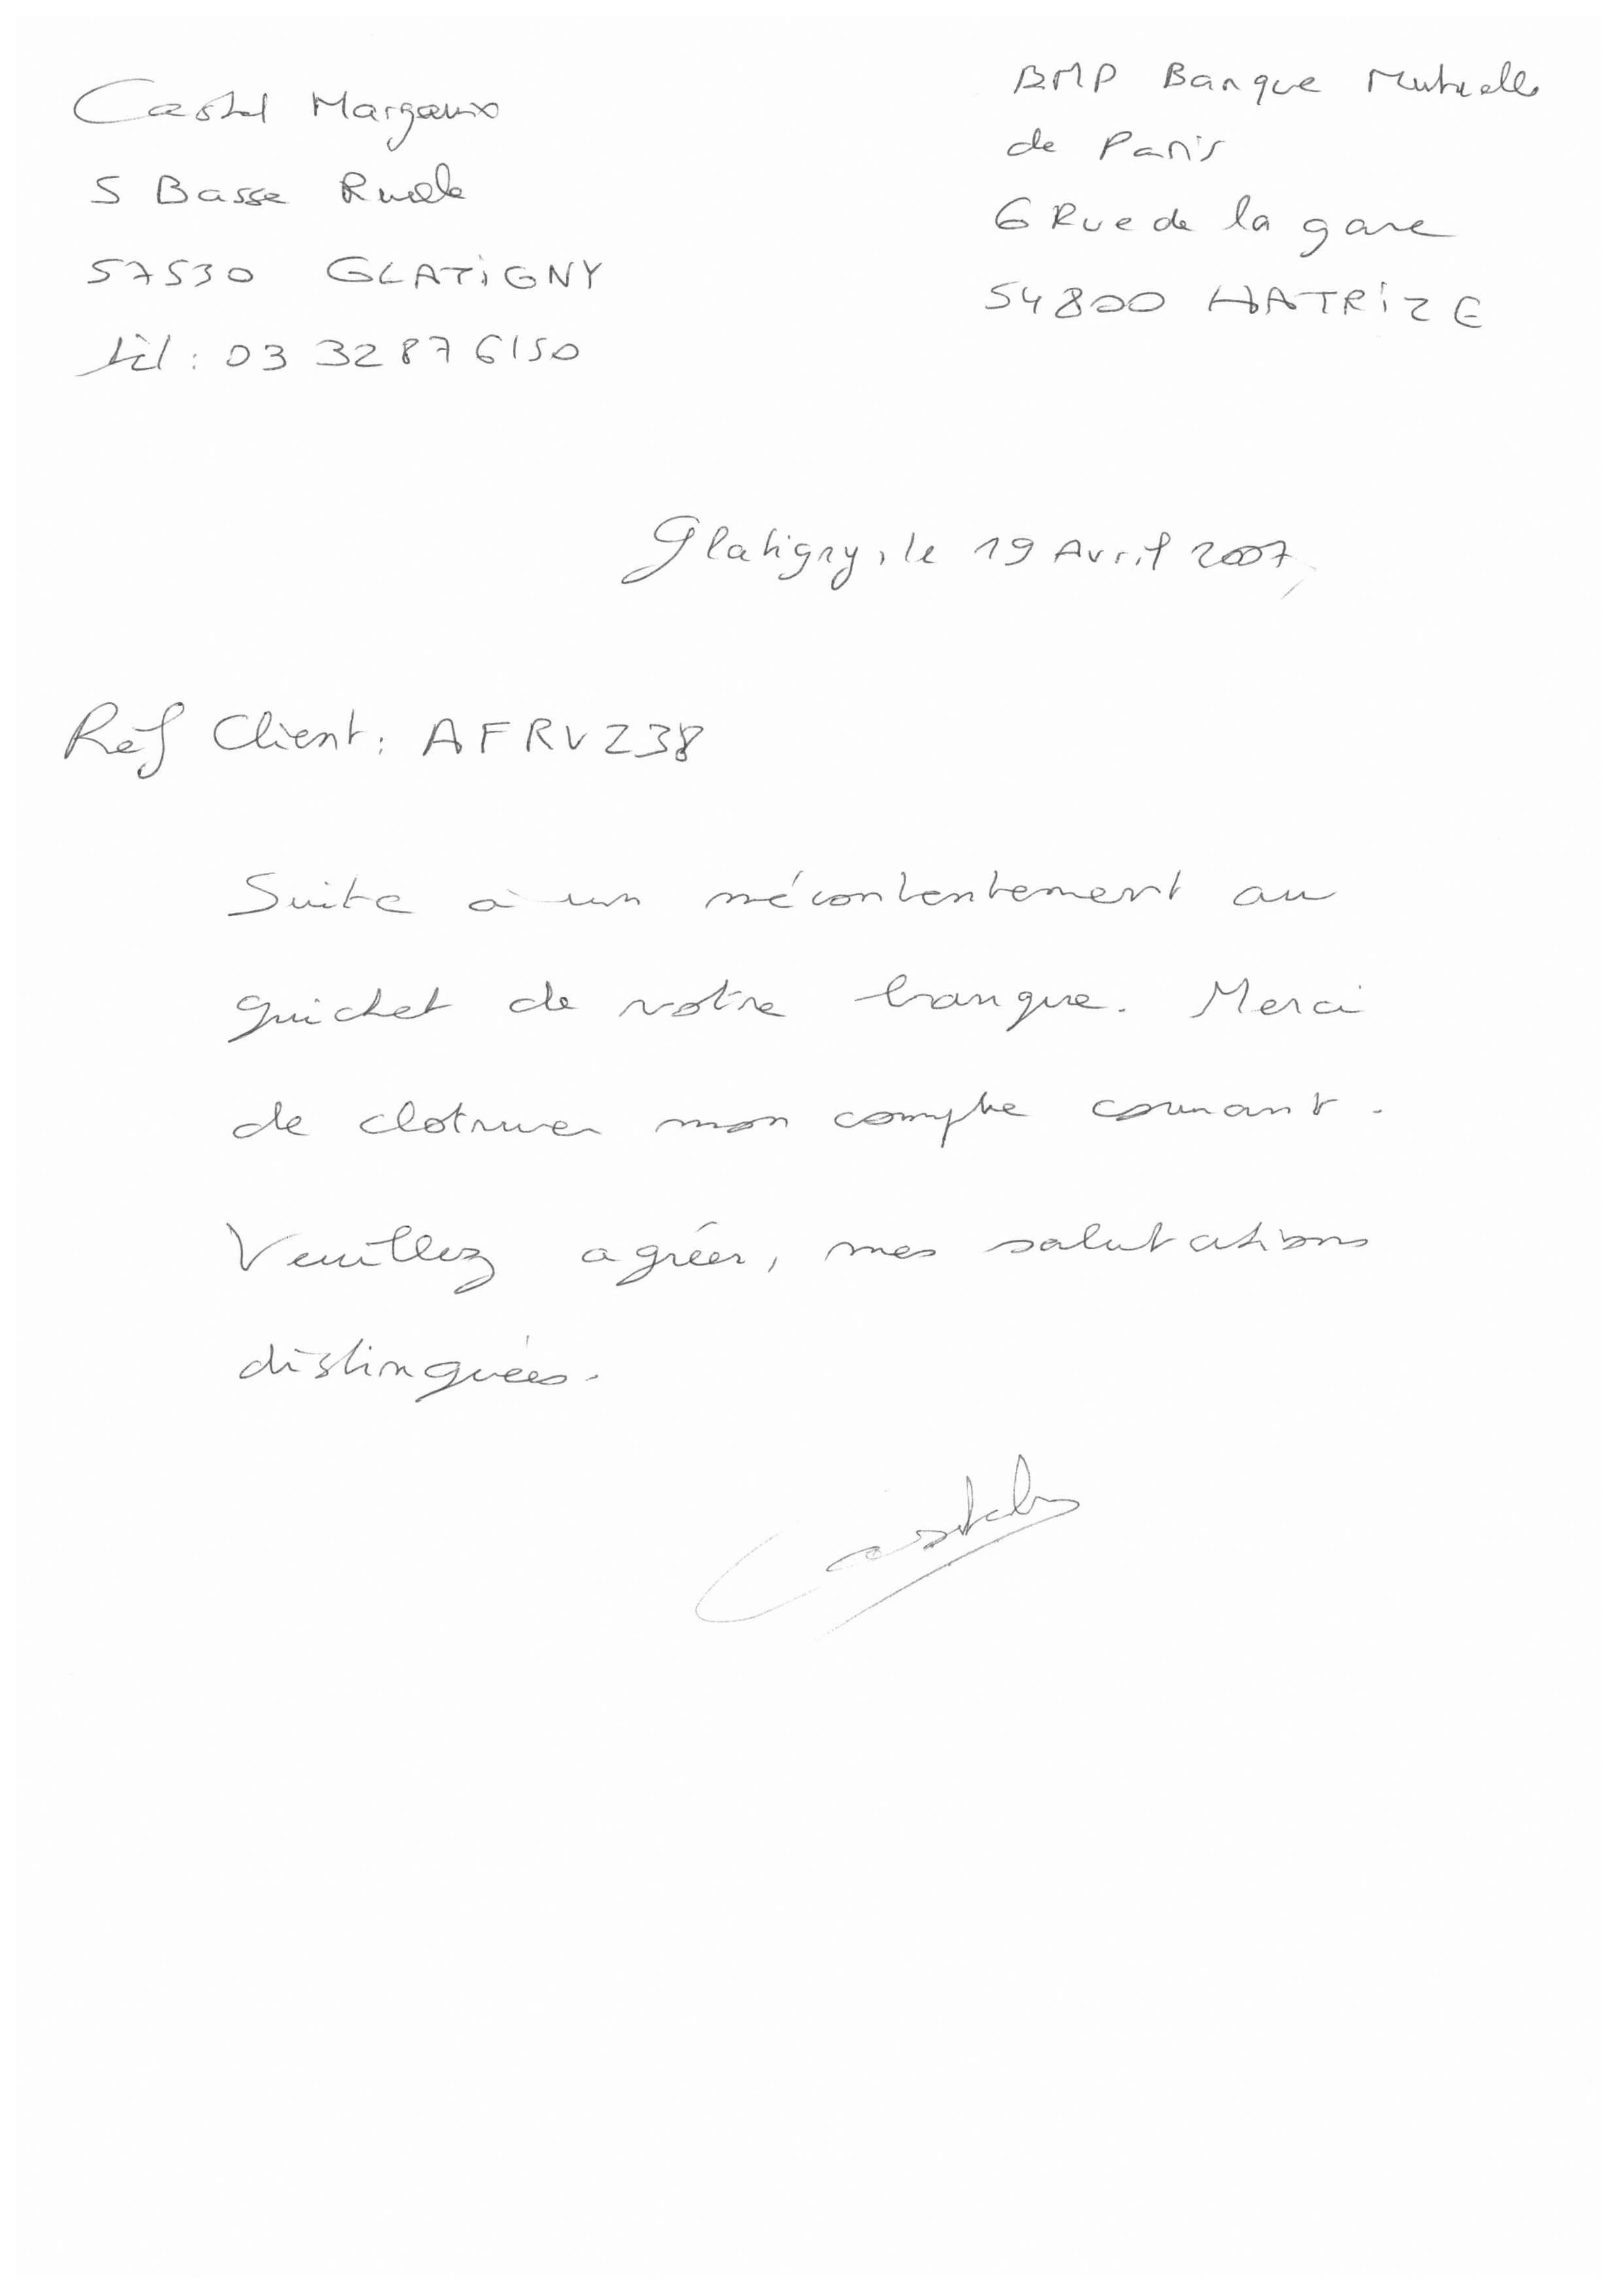 Castel Margaux
5 Basse Ruelle
57530 GLATIGNY
tél : 03 32 87 61 50
BMP Banque Mutuelle
de Paris
6 Rue de la gare
54800 HATRIZE
Glatigny, le 19 Avril 2007,
Réf Client : AFRVZ38
Suite à un mécontentement au
guichet de votre banque. Merci
de clotruer mon compte courant.
Veuillez agréer, mes salutations
distinguées.
Castel